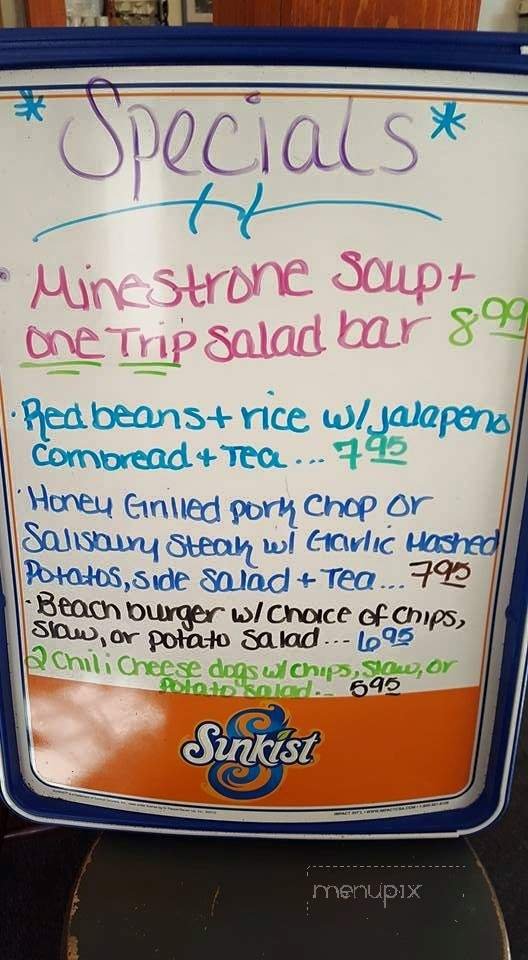 * Specials *
Minestrone Soup +
one Trip salad bar 8.99
· Red beans + rice w/ jalapeno
Cornbread + Tea... 7.95
· Honey Grilled pork Chop or
Salisbury Steak w/ Garlic Mashed
Potatos, side salad + Tea... 7.95
· Beach burger w/ Choice of Chips,
slaw, or potato salad --- 6.95
2 Chili Cheese dogs w/ chips, slaw, or
Potato salad... 5.95
Sunkist
menupix